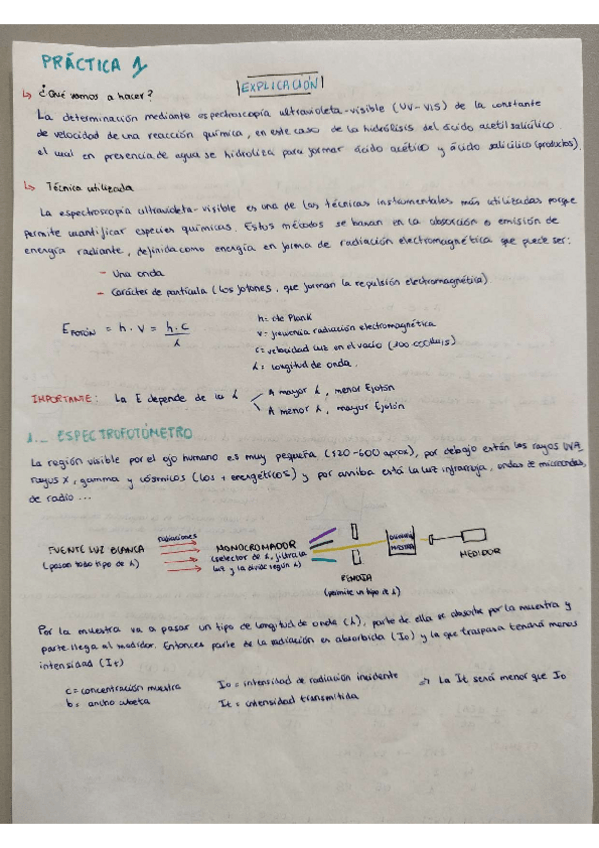 PRÁCTICA 1
EXPLICACIÓN
↳ ¿Qué vamos a hacer?
La determinación mediante espectroscopía ultravioleta-visible (UV-VIS) de la constante
de velocidad de una reacción química, en este caso de la hidrólisis del ácido acetilsalicílico
el cual en presencia de agua se hidroliza para formar ácido acético y ácido salicílico (productos).
↳ Técnica utilizada
La espectroscopía ultravioleta-visible es una de las técnicas instrumentales más utilizadas porque
permite cuantificar especies químicas. Estos métodos se basan en la absorción o emisión de
energía radiante, definida como energía en forma de radiación electromagnética que puede ser:
- Una onda
- Carácter de partícula (los fotones, que forman la repulsión electromagnética)
E FOTÓN = h · ν = h·c / λ
h = cte Plank
ν = frecuencia radiación electromagnética
c = velocidad luz en el vacío
λ = longitud de onda
IMPORTANTE: La E depende de la λ
A mayor λ, menor Efotón
A menor λ, mayor Efotón
1.- ESPECTROFOTÓMETRO
La región visible por el ojo humano es muy pequeña (320-600 aprox), por debajo están los rayos UVA,
rayos X, gamma y cósmicos (los + energéticos) y por arriba está la luz infrarroja, ondas de microondas,
de radio...
FUENTE LUZ BLANCA
(pasan todo tipo de λ)
radiaciones
MONOCROMADOR
(selector de λ, filtra la
luz y la divide según λ)
RENDIJA
(permite un tipo de λ)
MUESTRA
MEDIDOR
Por la muestra va a pasar un tipo de longitud de onda (λ), parte de ella se absorbe por la muestra y
parte llega al medidor. Entonces parte de la radiación es absorbida (Io) y la que traspasa tendrá menos
intensidad (It)
c = concentración muestra
b = ancho cubeta
Io = intensidad de radiación incidente
It = intensidad transmitida
→ La It será menor que Io